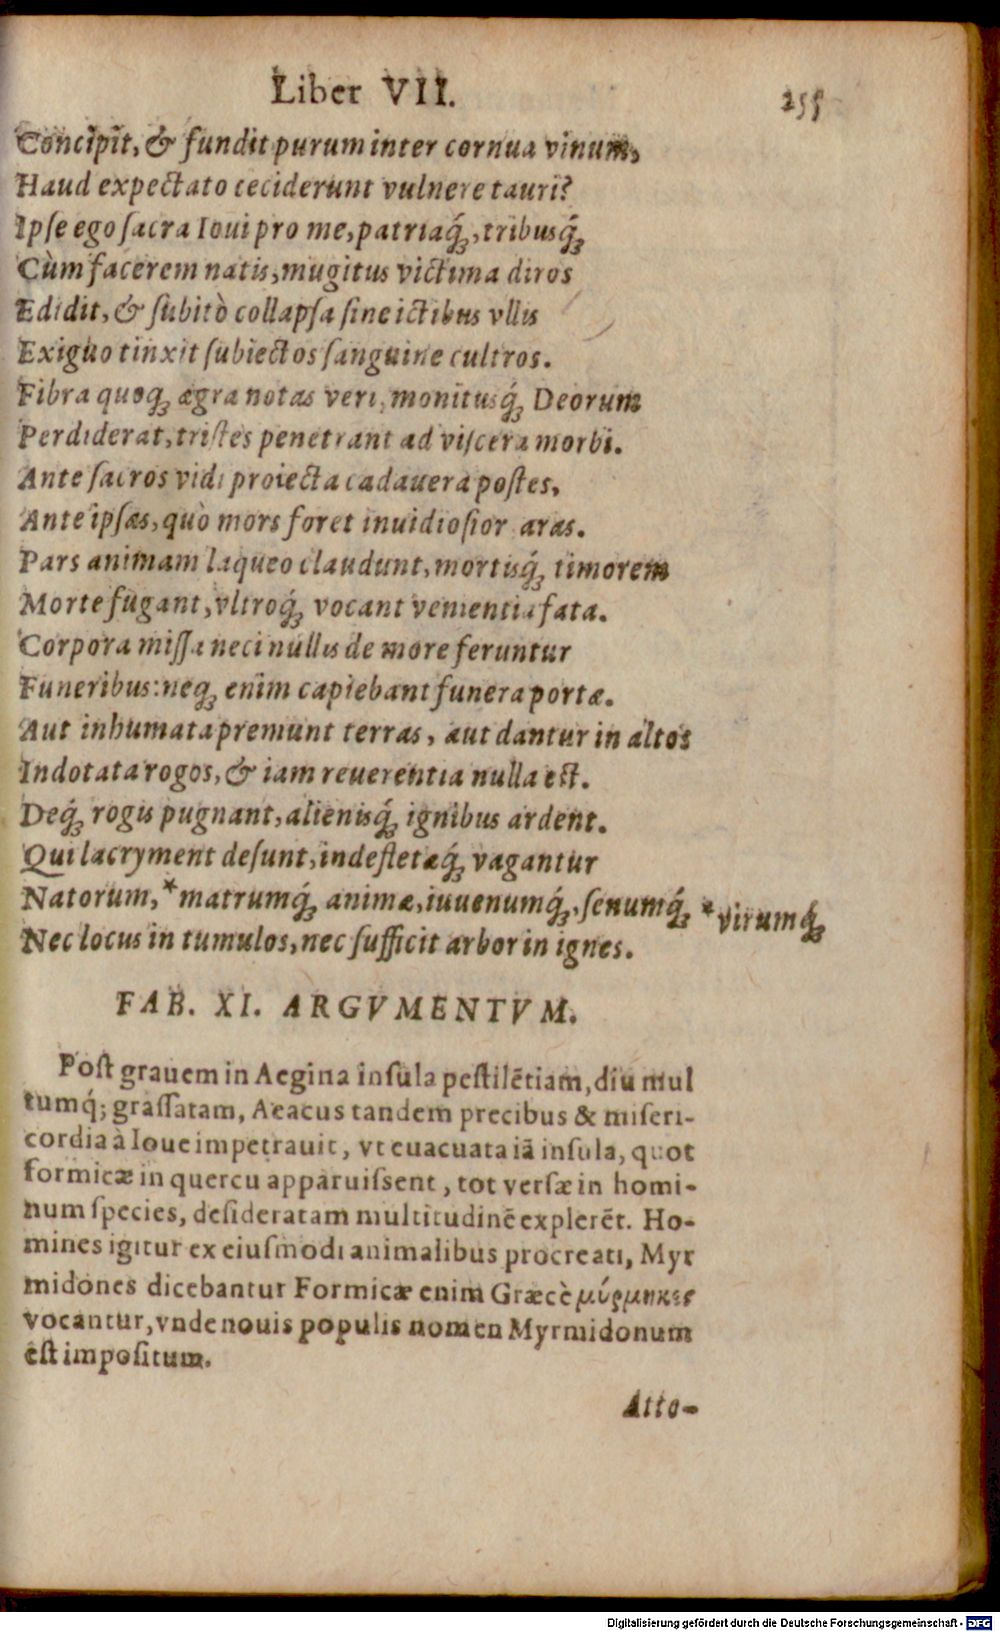 Liber VII. 255
Concĩpĩt, & fundit purum inter cornua vinum,
Haud expectato ceciderunt vulnere tauri?
Ipſe ego ſacra Ioui pro me, patriaq́ꝫ, tribusq́ꝫ
Cùm facerem natis, mugitus victima diros
Edidit, & ſubitò collapſa ſine ictibus vllis
Exiguo tinxit ſubiectos ſanguine cultros.
Fibra quoqꝫ ægra notas veri, monitusq́ꝫ Deorum
Perdiderat, triſtes penetrant ad viſcera morbi.
Ante ſacros vidi proiecta cadauera poſtes,
Ante ipſas, quò mors foret inuidioſior aras.
Pars animam laqueo claudunt, mortisq́ꝫ timorem
Morte fugant, vltroq́ꝫ vocant venientia fata.
Corpora miſſa neci nullis de more feruntur
Funeribus: neqꝫ enim capiebant funera portæ.
Aut inhumata premunt terras, aut dantur in altos
Indotata rogos, & iam reuerentia nulla est.
Deq́ꝫ rogis pugnant, alienisq́ꝫ ignibus ardent.
Qui lacryment deſunt, indefletæq́ꝫ vagantur
Natorum, *matrumq́ꝫ animæ, iuuenumq́ꝫ, ſenumq́ꝫ *virumq́ꝫ
Nec locus in tumulos, nec ſufficit arbor in ignes.
FAB. XI. ARGVMENTVM.
Poſt grauem in Aegina inſula peſtilẽtiam, diu mul
tumq́; graſſatam, Aeacus tandem precibus & miſeri-
cordia à Ioue impetrauit, vt euacuata iã inſula, quot
formicæ in quercu apparuiſſent, tot verſæ in homi-
num ſpecies, deſideratam multitudinẽ explerẽt. Ho-
mines igitur ex eiuſmodi animalibus procreati, Myr
midones dicebantur Formicæ enim Græcè μύρμηκες
vocantur, vnde nouis populis nomen Myrmidonum
eſt impoſitum.
Atto-
Digitalisierung gefördert durch die Deutsche Forschungsgemeinschaft - DFG